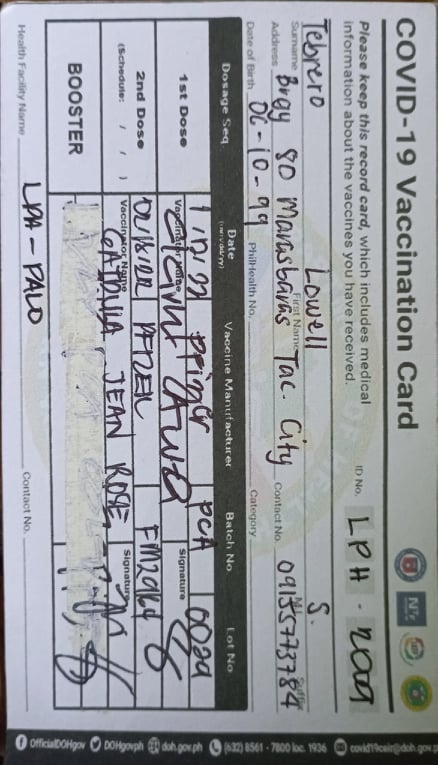 COVID-19 Vaccination Card
Please keep this record card, which includes medical
information about the vaccines you have received.
ID No. LPH - 2029
Tebrero Lowell S.
Surname First Name M.I. Suffix
Address Brgy 80 Marasbaras Tac. City Contact No. 09155773784
Date of Birth 06-10-99 PhilHealth No. Category
Dosage Seq. Date (mm/dd/yy) Vaccine Manufacturer Batch No. Lot No.
1st Dose Pfizer PCA
Vaccinator Name Signature
2nd Dose 02/18/22 PFIZER
(Schedule: / / ) Vaccinator Name JEAN ROSE Signature
BOOSTER
Health Facility Name LPH - PALO Contact No.
OfficialDOHgov DOHgovph doh.gov.ph (632) 8561 - 7800 loc. 1936 covid19ceir@doh.gov.p